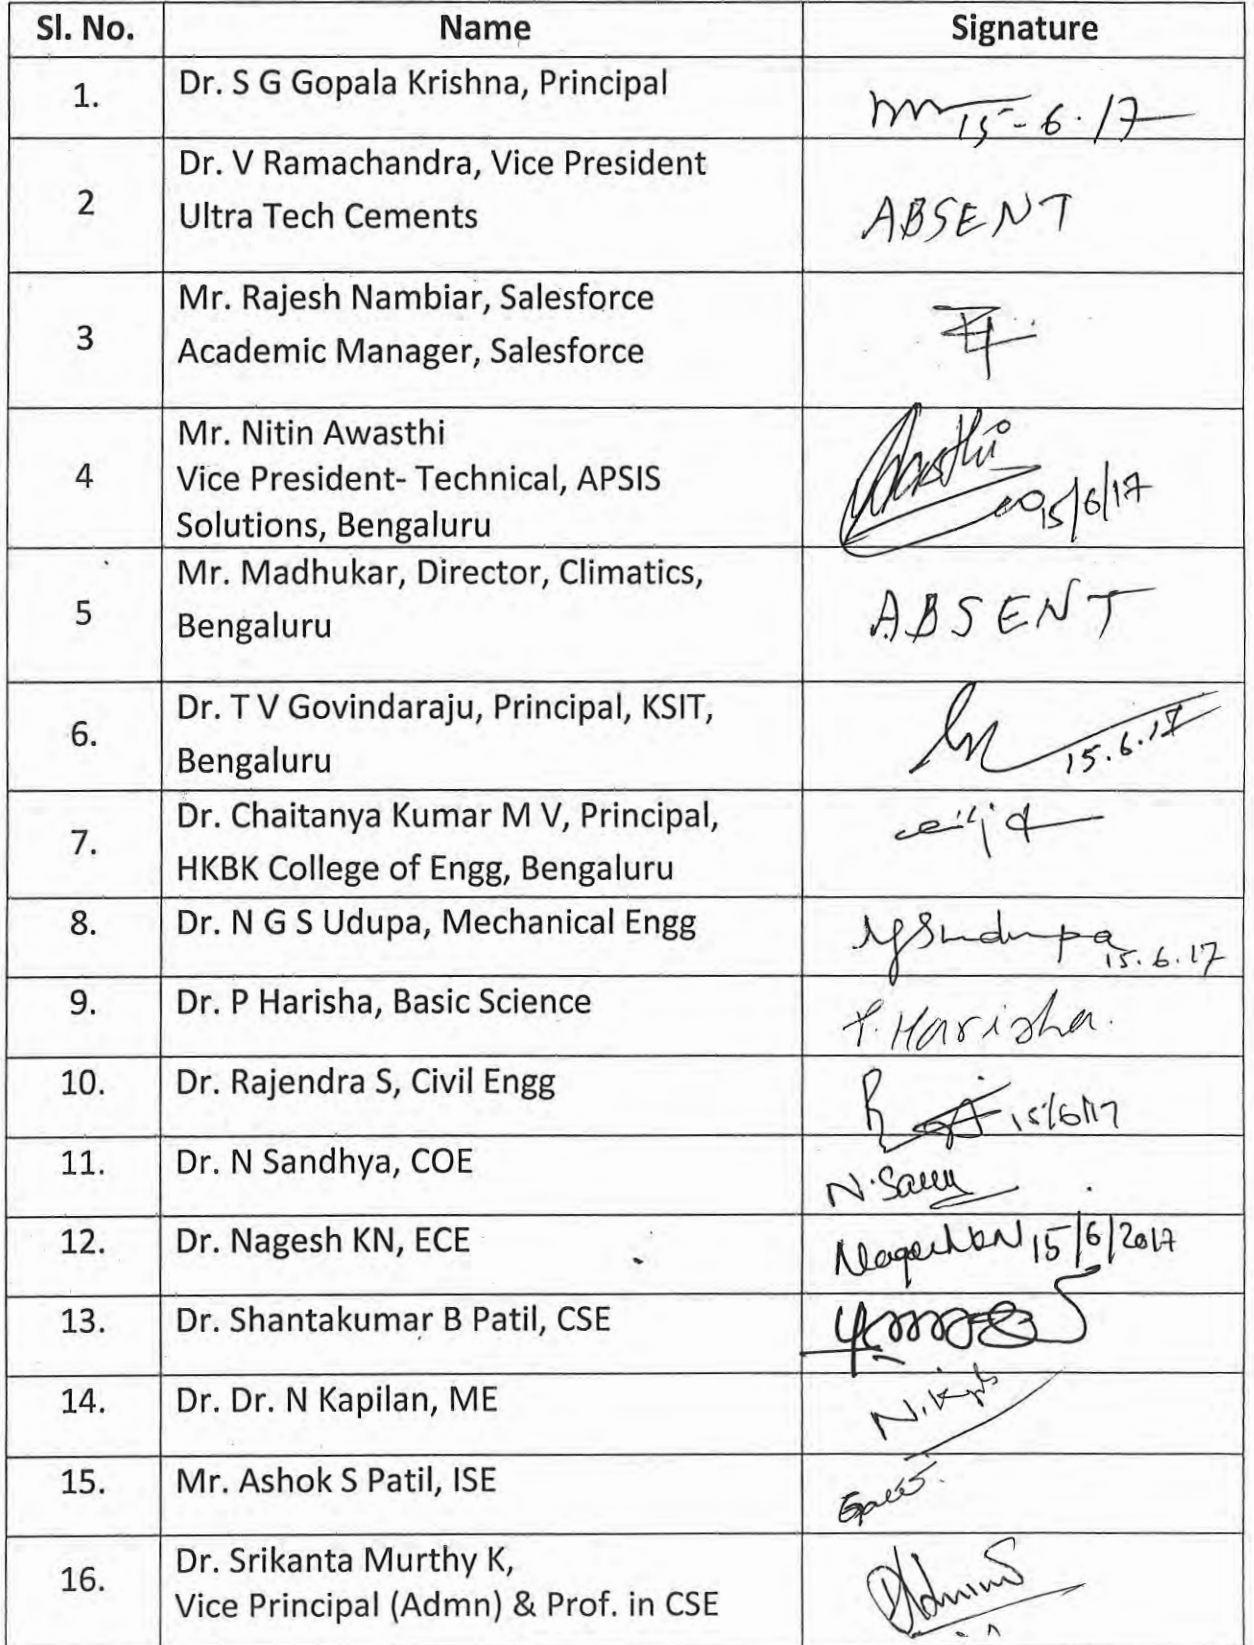 Sl. No. Name Signature
1. Dr. S G Gopala Krishna, Principal 15-6.17
2 Dr. V Ramachandra, Vice President
Ultra Tech Cements ABSENT
3 Mr. Rajesh Nambiar, Salesforce
Academic Manager, Salesforce
4 Mr. Nitin Awasthi
Vice President- Technical, APSIS
Solutions, Bengaluru 15/6/17
5 Mr. Madhukar, Director, Climatics,
Bengaluru ABSENT
6. Dr. T V Govindaraju, Principal, KSIT,
Bengaluru 15.6.17
7. Dr. Chaitanya Kumar M V, Principal,
HKBK College of Engg, Bengaluru
8. Dr. N G S Udupa, Mechanical Engg 15.6.17
9. Dr. P Harisha, Basic Science P. Harisha.
10. Dr. Rajendra S, Civil Engg 15/6/17
11. Dr. N Sandhya, COE
12. Dr. Nagesh KN, ECE 15/6/2017
13. Dr. Shantakumar B Patil, CSE
14. Dr. Dr. N Kapilan, ME
15. Mr. Ashok S Patil, ISE
16. Dr. Srikanta Murthy K,
Vice Principal (Admn) & Prof. in CSE